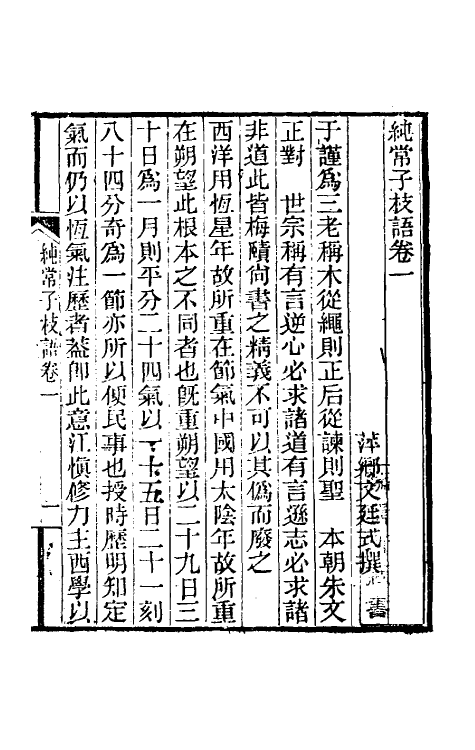 純常子枝語卷一
萍鄉文廷式撰
于謹爲三老稱木從繩則正后從諫則聖　本朝朱文
正對　世宗稱有言逆心必求諸道有言遜志必求諸
非道此皆梅賾尙書之精義不可以其僞而廢之
西洋用恆星年故所重在節氣中國用太陰年故所重
在朔望此根本之不同者也旣重朔望以二十九日三
十日爲一月則平分二十四氣以一十五日二十一刻
八十四分奇爲一節亦所以便民事也授時歷明知定
氣而仍以恆氣注歷者葢卽此意江愼修力主西學以
純常子枝語卷一
一